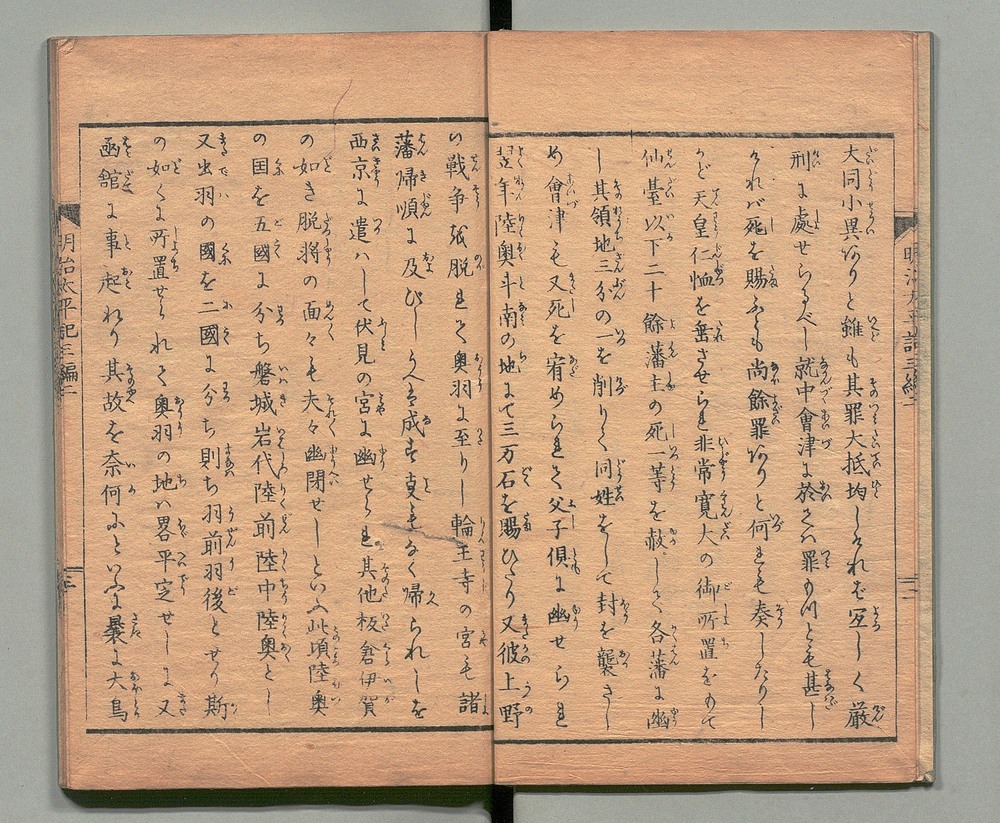 大同小異ありと雖も其罪大抵均しけれバ宜しく厳
刑に處せらるべし就中會津に於てハ罪のルとも甚し
けれバ死を賜ふも尚餘罪ありと何れも奏したりし
かど 天皇仁恤を垂させられ非常寛大の御所置をもて
仙臺以下二十餘藩主の死一等を赦して各藩に幽
し其領地三分の一を削りて同姓をして封を襲ざし
め會津も又死を宥められて父子倶に幽せられ
翌年陸奥斗南の地にて三万石を賜ひたり又彼上野
の戦争を脱れて奥羽に至りし輪王寺の宮も諸
藩帰順に及びしうへは成す事もなく帰られしを
西京に遣ハして伏見の宮に幽せられ其他板倉伊賀
の如き脱将の面々も夫々幽閉せしといふ此頃陸奥
の国を五國に分ち磐城岩代陸前陸中陸奥とし
又出羽の國を二國に分ち則ち羽前羽後とせり斯
の如くに所置せられて奥羽の地ハ畧平定せしに又
函館に事起れり其故を奈何にといふに曩に大鳥
明治太平記三編二